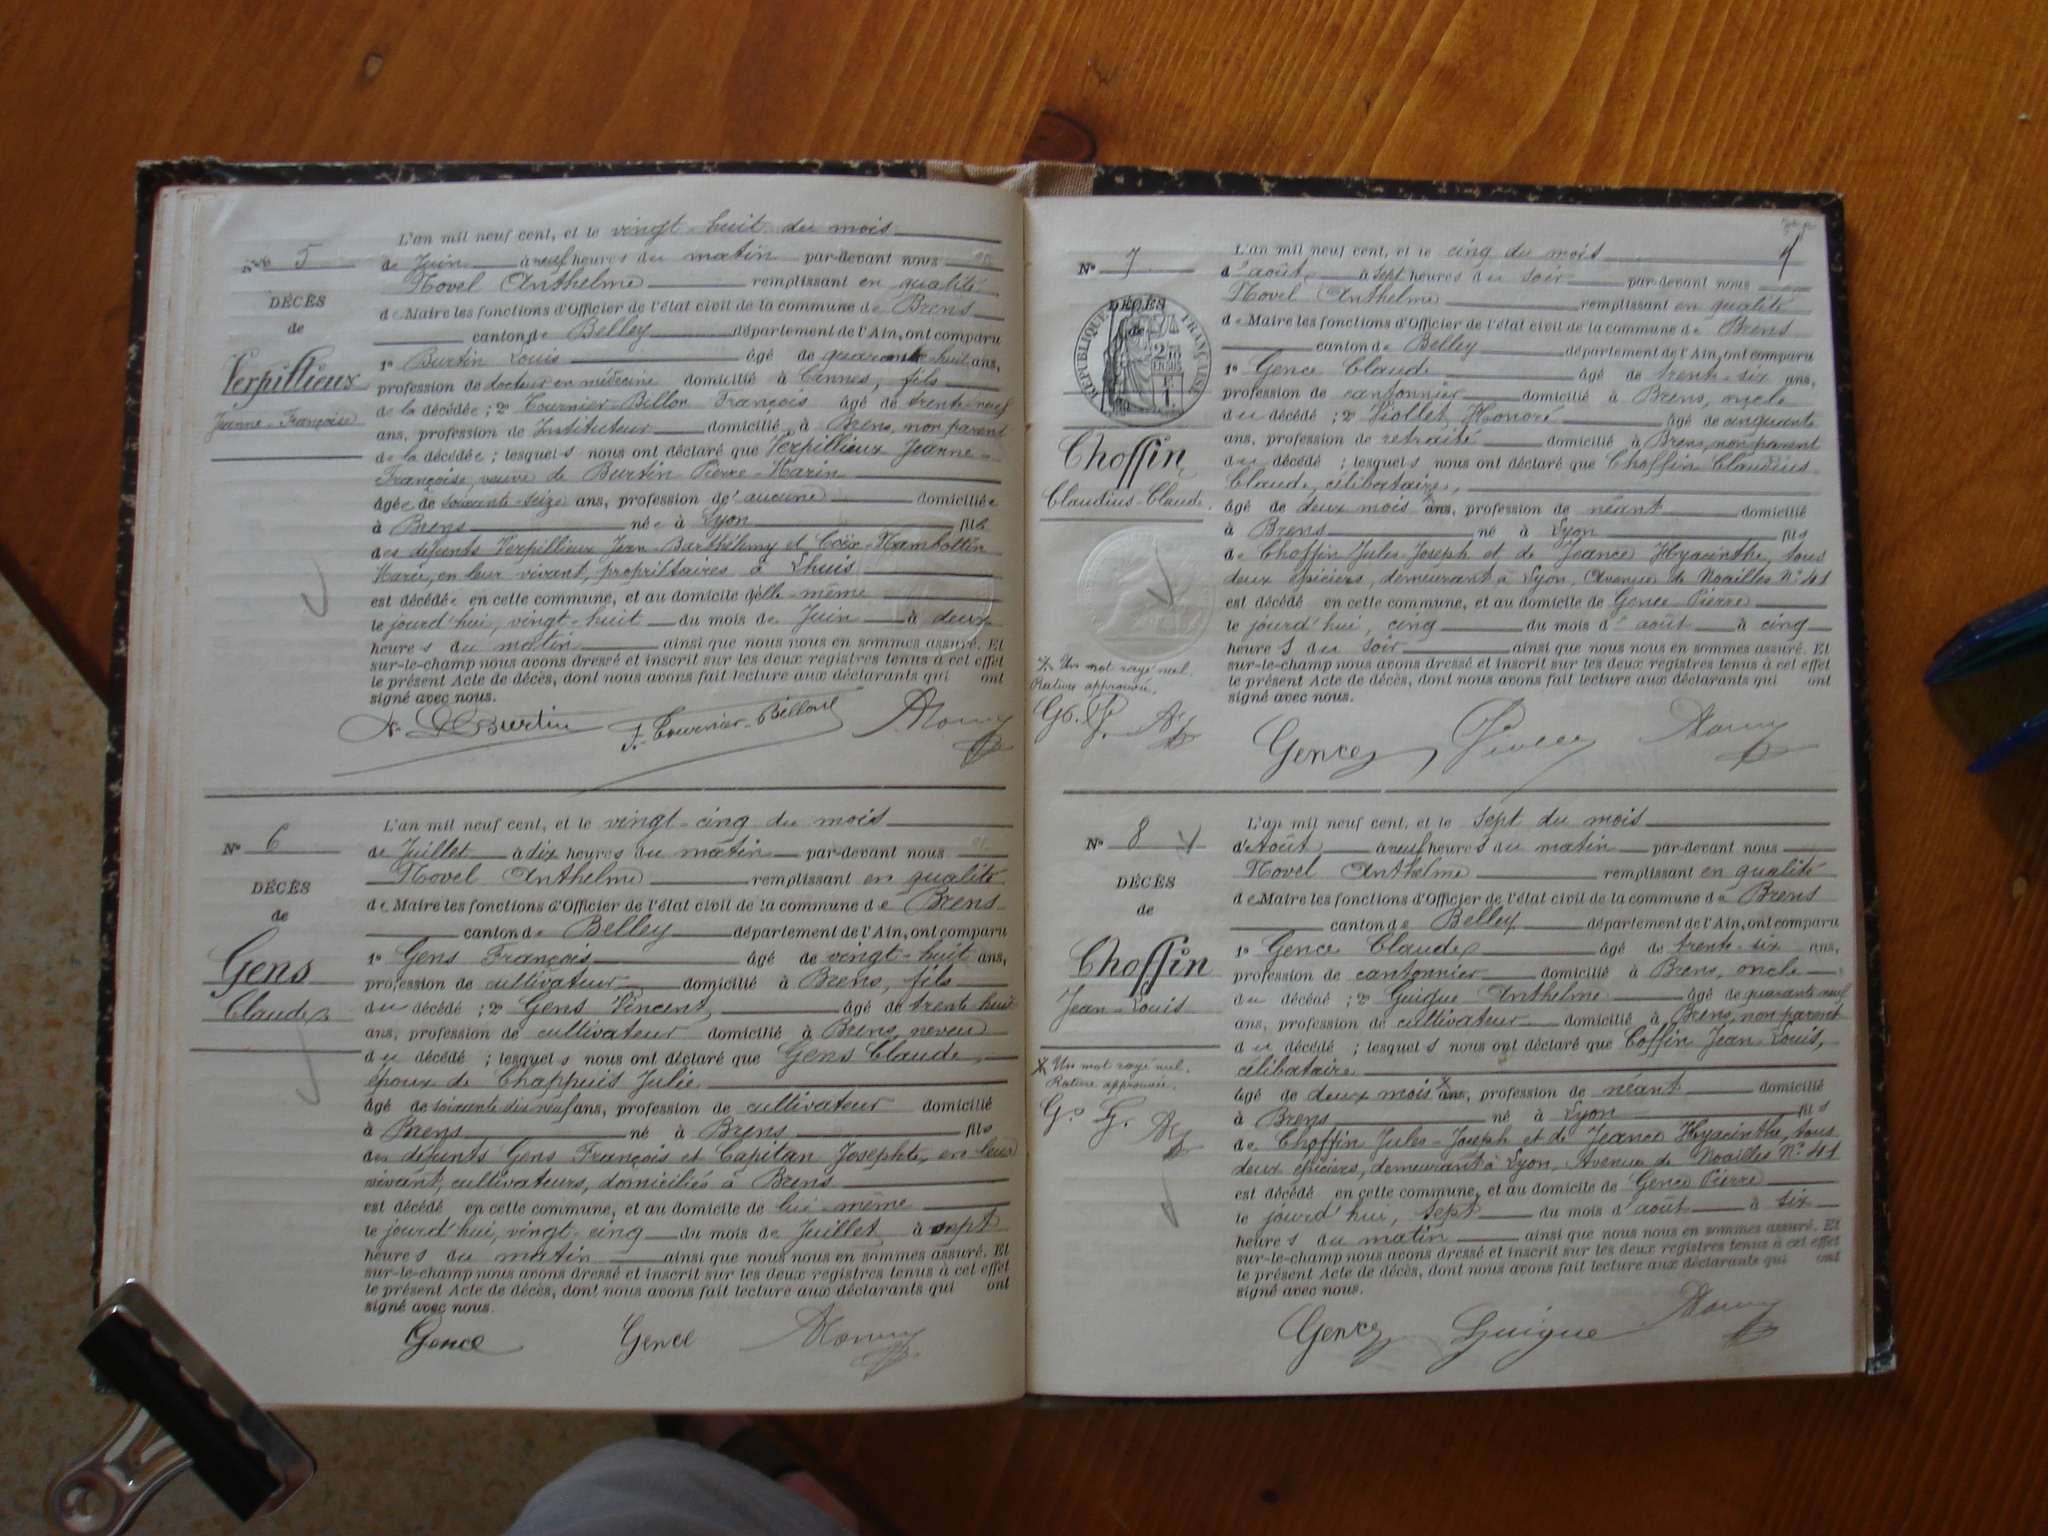 L'an mil neuf cent, et le vingt-huit du mois
N° 5
de Juin à neuf heures du matin par-devant nous
Novel Anthelme remplissant en qualité
DÉCÈS
de Maire les fonctions d'Officier de l'état civil de la commune de Brens
de
canton de Belley département de l'Ain, ont comparu
Verpillieux
1° Burtin Louis âgé de quarante-huit ans,
profession de docteur en médecine domicilié à Cannes, fils
Jeanne-Françoise
de la décédée ; 2° Tournier-Billon François âgé de trente-neuf
ans, profession de Instituteur domicilié à Brens, non parent
de la décédée ; lesquels nous ont déclaré que Verpillieux Jeanne-
Françoise, veuve de Burtin Pierre-Marin
âgée de soixante-seize ans, profession d'aucune domiciliée
à Brens née à Lyon fille
des défunts Verpillieux Jean-Barthélemy et
Marie, en leur vivant, propriétaires à Lhuis
est décédée en cette commune, et au domicile d'elle-même
le jourd'hui, vingt-huit du mois de Juin à deux
heures du matin ainsi que nous nous en sommes assuré. Et
sur-le-champ nous avons dressé et inscrit sur les deux registres tenus à cet effet
le présent Acte de décès, dont nous avons fait lecture aux déclarants qui ont
signé avec nous.
Burtin F. Tournier-Billon
L'an mil neuf cent, et le vingt-cinq du mois
N° 6
de Juillet à dix heures du matin par-devant nous
Novel Anthelme remplissant en qualité
DÉCÈS
de Maire les fonctions d'Officier de l'état civil de la commune de Brens
de
canton de Belley département de l'Ain, ont comparu
Gens
1° Gens François âgé de vingt-huit ans,
profession de cultivateur domicilié à Brens, fils
Claude
du décédé ; 2° Gens Vincent âgé de trente-huit
ans, profession de cultivateur domicilié à Brens, neveu
du décédé ; lesquels nous ont déclaré que Gens Claude,
époux de Chappuis Julie
âgé de soixante dix neuf ans, profession de cultivateur domicilié
à Brens né à Brens fils
des défunts Gens François et Capitan Josephte, en leur
vivant, cultivateurs, domiciliés à Brens
est décédé en cette commune, et au domicile de lui-même
le jourd'hui, vingt-cinq du mois de Juillet à sept
heures du matin ainsi que nous nous en sommes assuré. Et
sur-le-champ nous avons dressé et inscrit sur les deux registres tenus à cet effet
le présent Acte de décès, dont nous avons fait lecture aux déclarants qui ont
signé avec nous.
Gence Gence
L'an mil neuf cent, et le cinq du mois
N° 7
d'août à sept heures du soir par-devant nous
Novel Anthelme remplissant en qualité
DÉCÈS
de
RÉPUBLIQUE FRANÇAISE
de Maire les fonctions d'Officier de l'état civil de la commune de Brens
canton de Belley département de l'Ain, ont comparu
1° Gence Claude âgé de trente-six ans,
profession de cantonnier domicilié à Brens, oncle
du décédé ; 2° Viollet Honoré âgé de cinquante
ans, profession de retraité domicilié à Brens, non parent
Choffin
du décédé ; lesquels nous ont déclaré que Choffin Claudius-
Claudius-Claude
Claude, célibataire,
âgé de deux mois ans, profession de néant domicilié
à Brens né à Lyon fils
de Choffin Jules-Joseph et de Jeance Hyacinthe, tous
deux épiciers, demeurant à Lyon, Avenue de Noailles N° 41
est décédé en cette commune, et au domicile de Gence Pierre
le jourd'hui, cinq du mois d'août à cinq
heures du soir ainsi que nous nous en sommes assuré. Et
sur-le-champ nous avons dressé et inscrit sur les deux registres tenus à cet effet
le présent Acte de décès, dont nous avons fait lecture aux déclarants qui ont
signé avec nous.
Un mot rayé nul.
Rature approuvée.
Gence
L'an mil neuf cent, et le sept du mois
N° 8
d'Août à neuf heures du matin par-devant nous
Novel Anthelme remplissant en qualité
DÉCÈS
de Maire les fonctions d'Officier de l'état civil de la commune de Brens
de
canton de Belley département de l'Ain, ont comparu
Choffin
1° Gence Claude âgé de trente-six ans,
profession de cantonnier domicilié à Brens, oncle
Jean-Louis
du décédé ; 2° Guigue Anthelme âgé de quarante neuf
ans, profession de cultivateur domicilié à Brens, non parent
du décédé ; lesquels nous ont déclaré que Coffin Jean-Louis,
célibataire
Un mot rayé nul.
Rature approuvée.
âgé de deux mois ans, profession de néant domicilié
à Brens né à Lyon fils
de Choffin Jules-Joseph et de Jeance Hyacinthe, tous
deux épiciers, demeurant à Lyon, Avenue de Noailles N° 41
est décédé en cette commune, et au domicile de Gence Pierre
le jourd'hui, sept du mois d'août à six
heures du matin ainsi que nous nous en sommes assuré. Et
sur-le-champ nous avons dressé et inscrit sur les deux registres tenus à cet effet
le présent Acte de décès, dont nous avons fait lecture aux déclarants qui ont
signé avec nous.
Gence Guigue